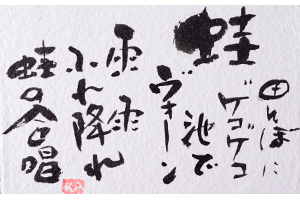 田んぼに
ゲコゲコ
池で
ヴォーン
蛙
雨雨
ふれ降れ
蛙の合唱